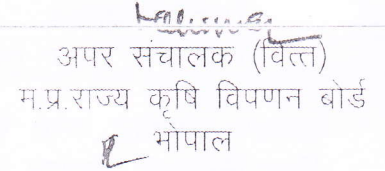 अपर संचालक (वित्त)
म.प्र.राज्य कृषि विपणन बोर्ड
भोपाल